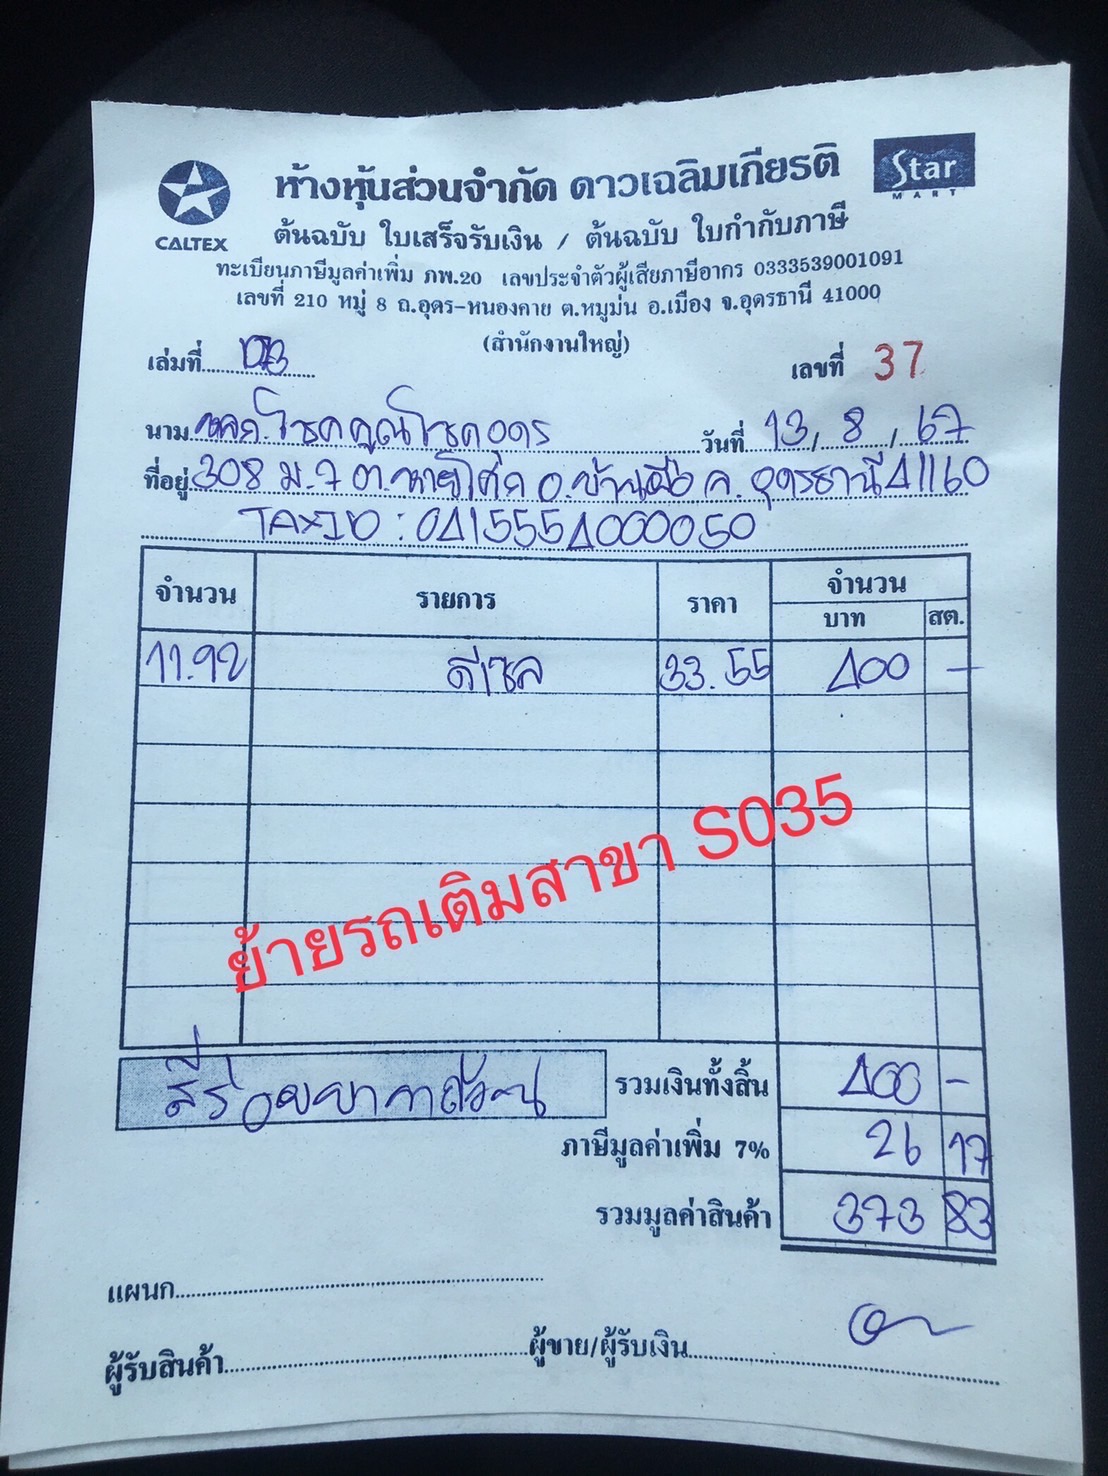 ห้างหุ้นส่วนจำกัด ดาวเฉลิมเกียรติ
Star
MART
CALTEX
ต้นฉบับ ใบเสร็จรับเงิน / ต้นฉบับ ใบกำกับภาษี
ทะเบียนภาษีมูลค่าเพิ่ม ภพ.20 เลขประจำตัวผู้เสียภาษีอากร 0333539001091
เลขที่ 210 หมู่ 8 ถ.อุดร-หนองคาย ต.หมูม่น อ.เมือง จ.อุดรธานี 41000
(สำนักงานใหญ่)
เล่มที่
เลขที่ 37
นาม โชคคูณโชคอุดร วันที่ 13, 8, 67
ที่อยู่ 308 ม.7 ต. อ.บ้านผือ จ. อุดรธานี 41160
TAXID : 0415554000050
จำนวน รายการ ราคา จำนวน
บาท สต.
11.92 ดีเซล 33.55 400 -
ย้ายรถเติมสาขา S035
สี่ร้อยบาทถ้วน รวมเงินทั้งสิ้น 400 -
ภาษีมูลค่าเพิ่ม 7% 26 17
รวมมูลค่าสินค้า 373 83
แผนก
ผู้รับสินค้า ผู้ขาย/ผู้รับเงิน